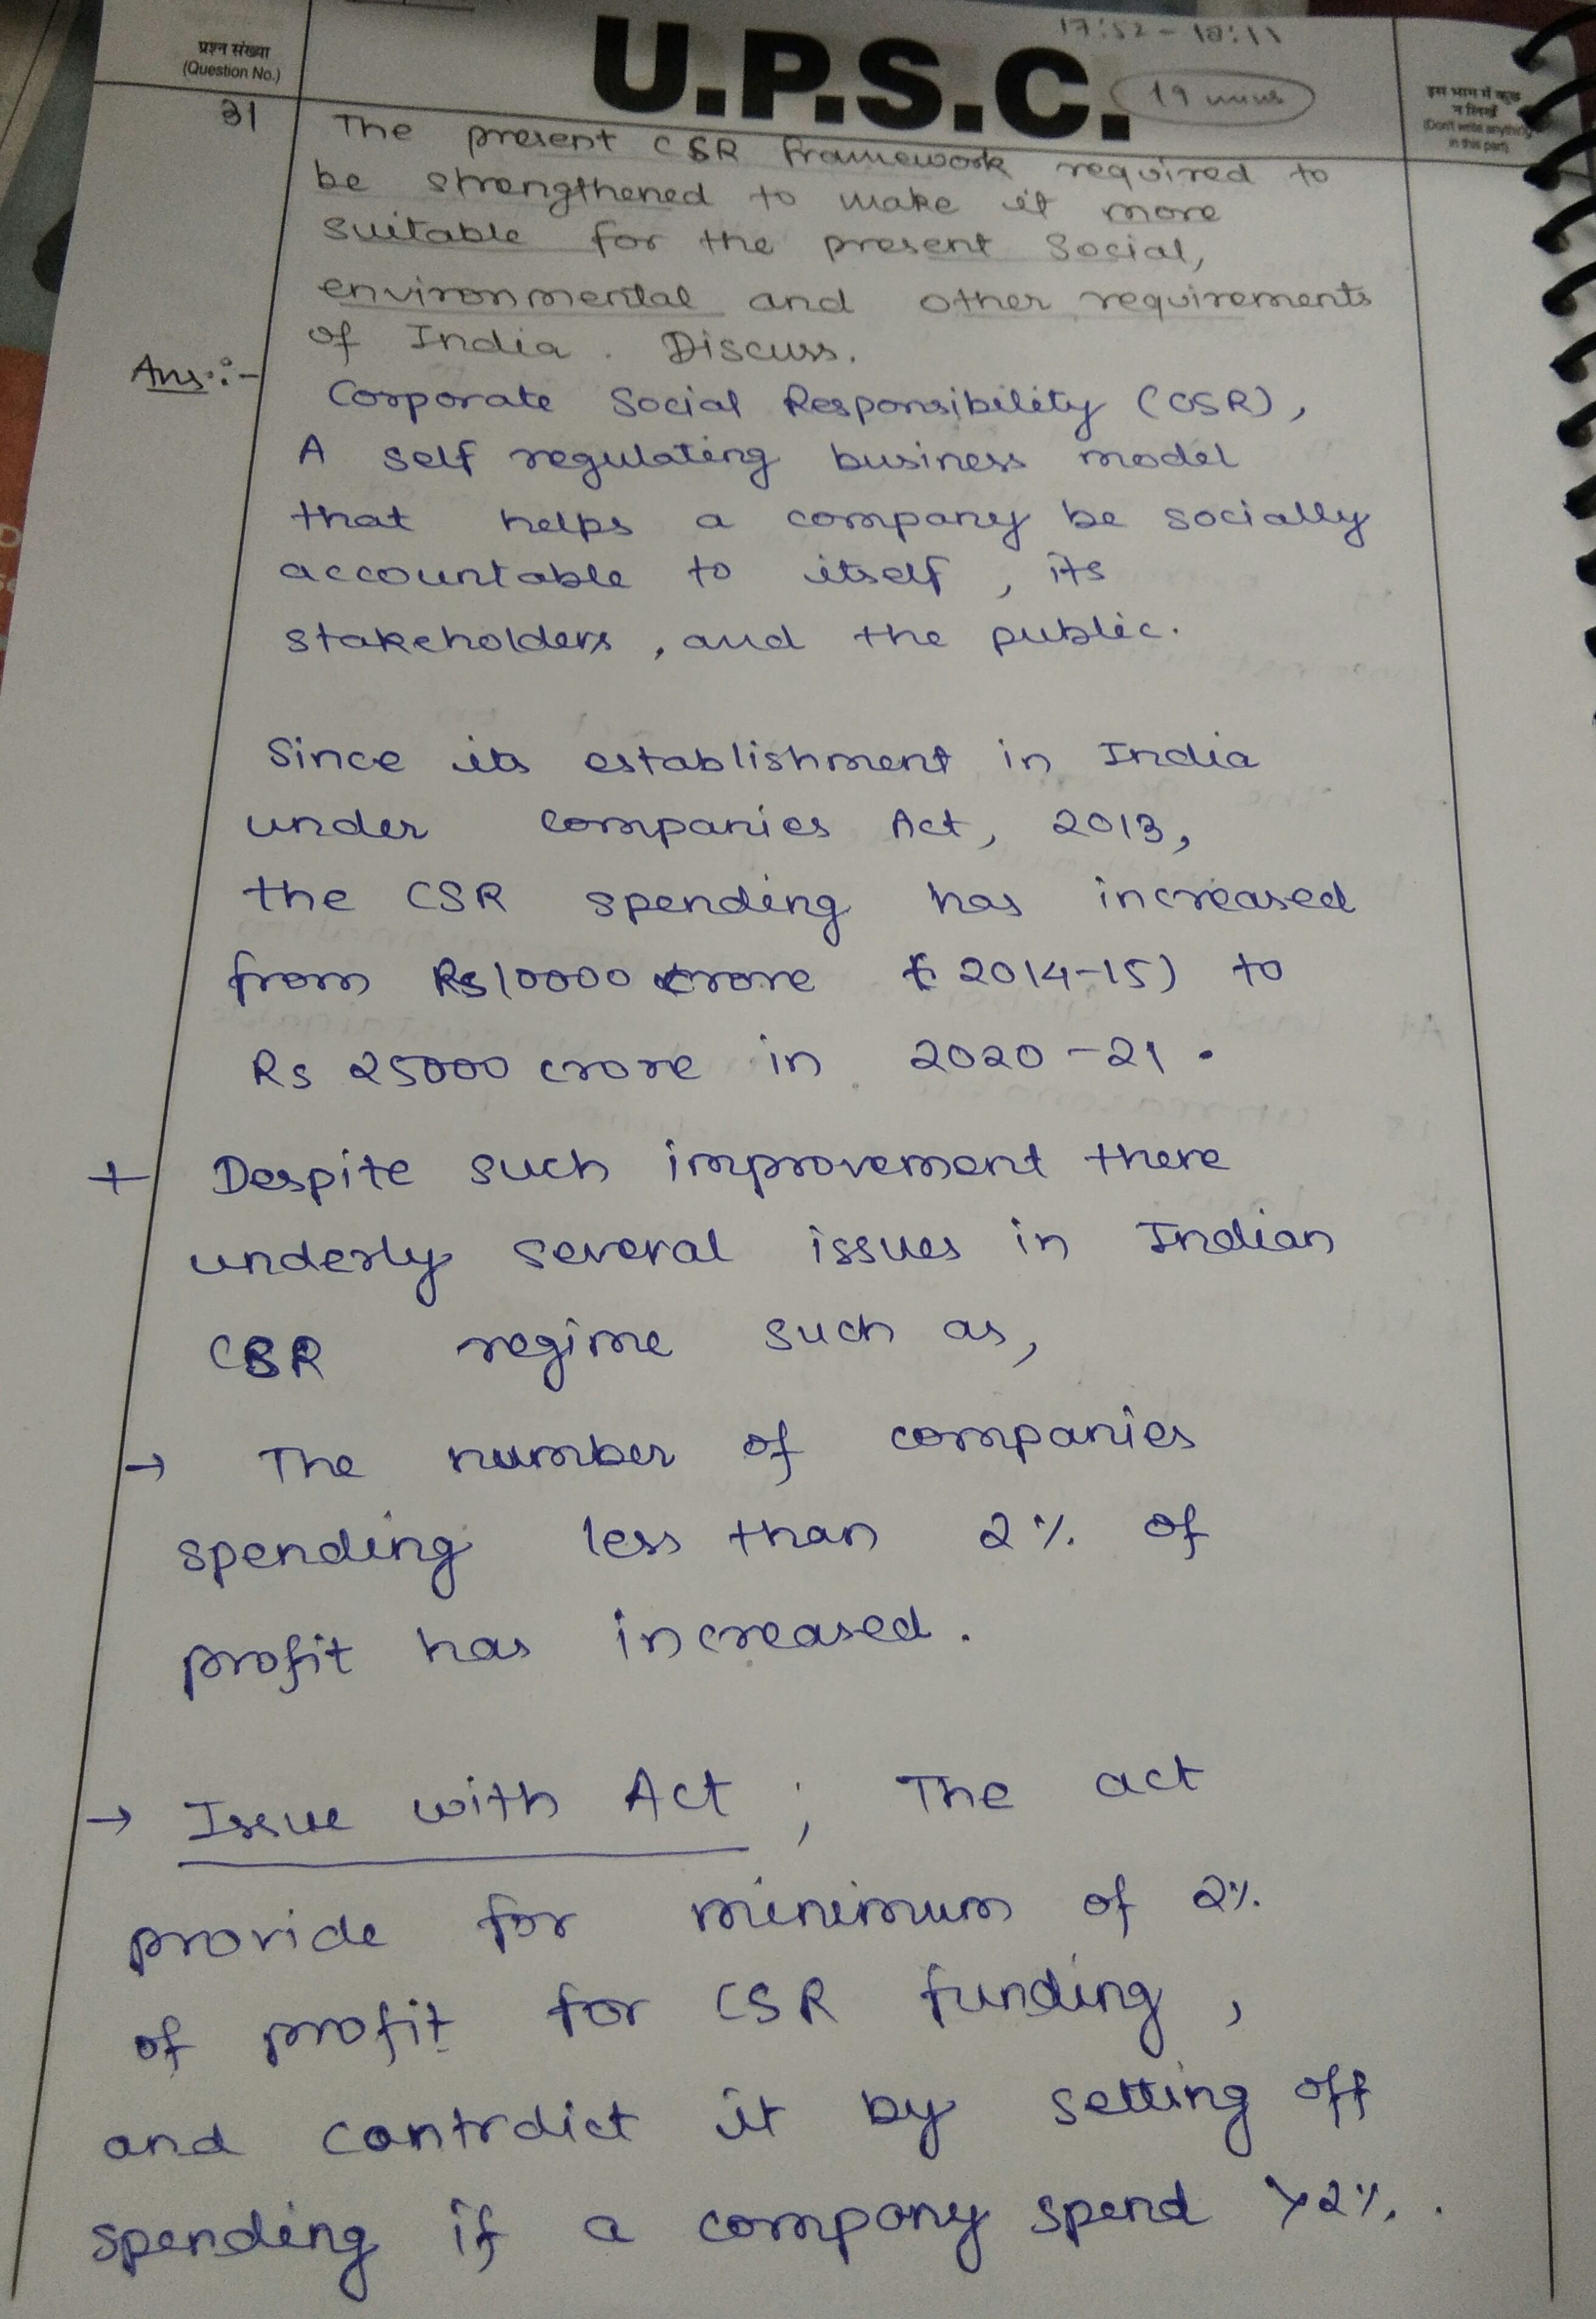 17:52 - 18:11
प्रश्न संख्या
(Question No.)
U.P.S.C.
19 mins
इस भाग में कुछ
न लिखें
(Don't write anything
in this part)
31
The present CSR Framework required to
be strengthened to make it more
suitable for the present Social,
environmental and other requirements
of India. Discuss.
Ans:-
Corporate Social Responsibility (CSR),
A self regulating business model
that helps a company be socially
accountable to itself, its
stakeholders, and the public.
Since its establishment in India
under Companies Act, 2013,
the CSR spending has increased
from Rs 10000 crore ( 2014-15) to
Rs 25000 crore in 2020-21.
+ Despite such improvement there
underly several issues in Indian
CSR regime such as,
→ The number of companies
spending less than 2% of
profit has increased.
→ Issue with Act ; The act
provide for minimum of 2%
of profit for CSR funding,
and contrdict it by setting off
spending if a company spend >2%.